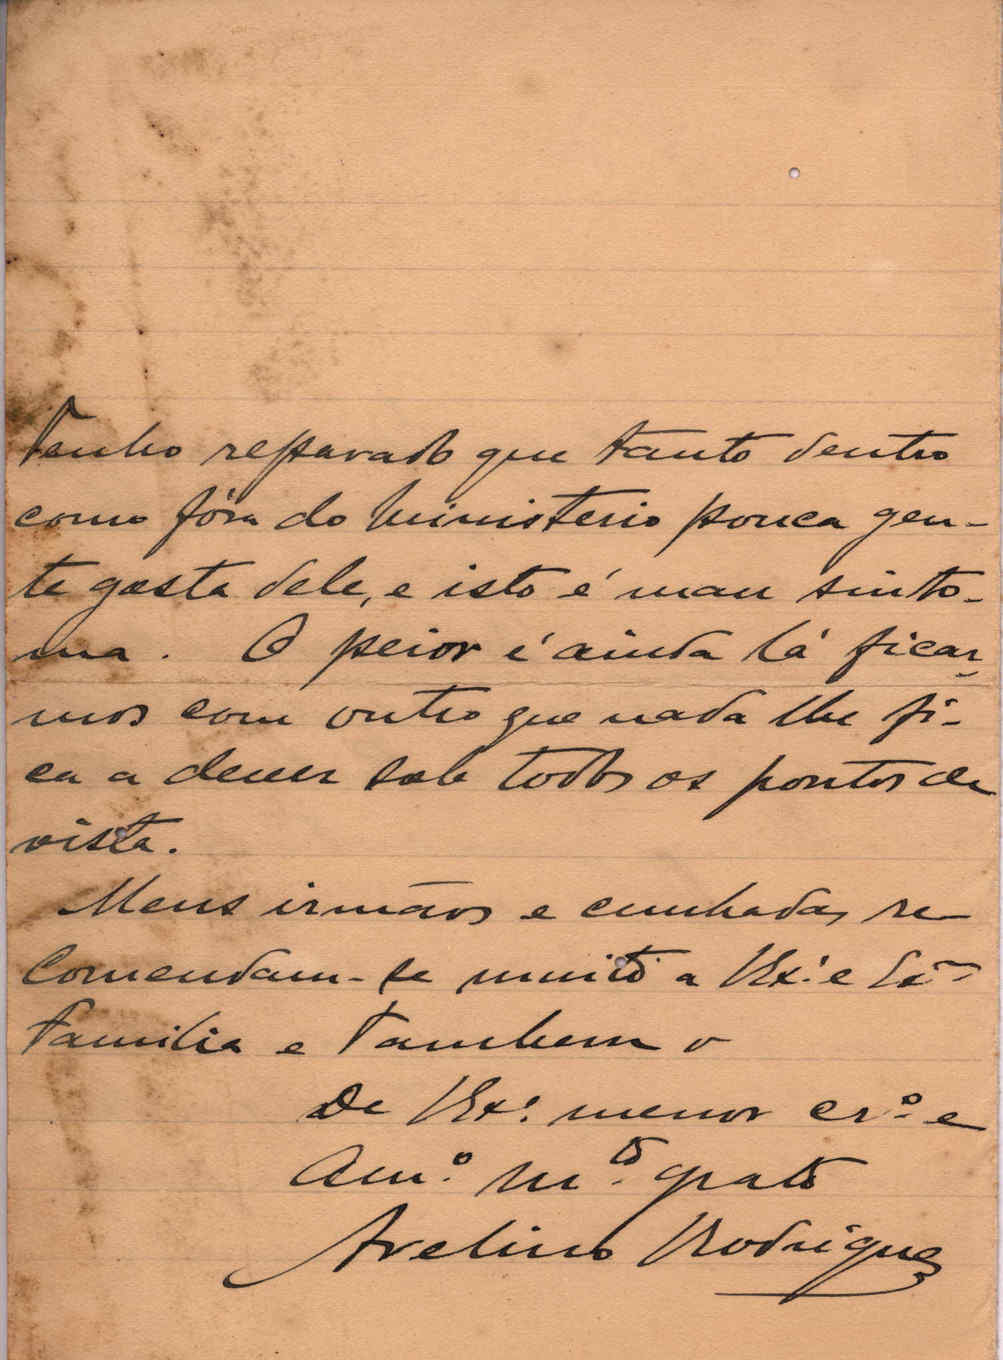 Tenho reparado que tanto dentro
como fóra do Ministerio pouca gen-
te gosta dele, e isto é mau sinto-
ma. O peior é ainda lá ficar-
mos com outro que nada lhe fi-
ca a dever sob todos os pontos de
vista.
Meus irmãos e cunhadas re-
comendam-se muito a V. Ex.ª e Ex.ma
familia e tambem o
De V. Ex.ª menor cr.º e
Am.º M.to grato
Avelino Rodrigues